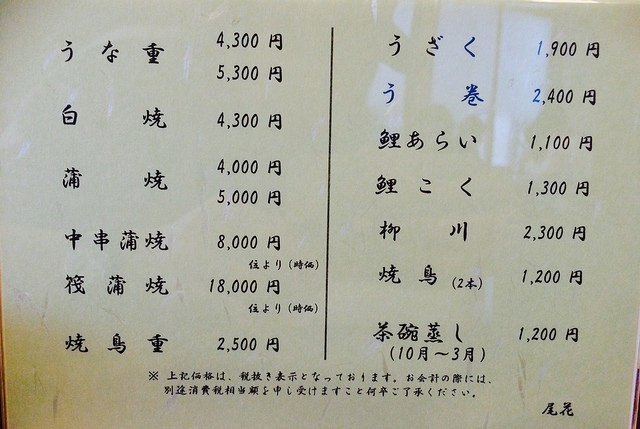 うな重 4,300 円
5,300 円
白焼 4,300 円
蒲焼 4,000 円
5,000 円
中串蒲焼 8,000 円
位より(時価)
筏蒲焼 18,000 円
位より(時価)
焼鳥重 2,500 円
うざく 1,900 円
う巻 2,400 円
鯉あらい 1,100 円
鯉こく 1,300 円
柳川 2,300 円
焼鳥(2本) 1,200 円
茶碗蒸し 1,200 円
(10月～3月)
※ 上記価格は、税抜き表示となっております。お会計の際には、
別途消費税相当額を申し受けますこと何卒ご了承ください。
尾花